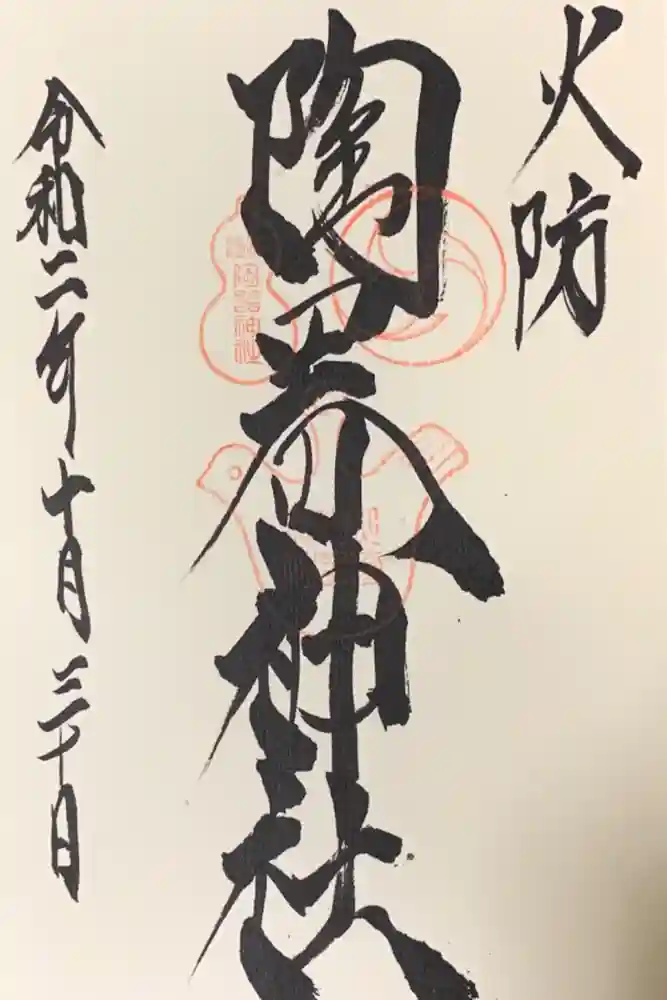 火防
陶器神社
陶器神社
令和二年十月三十日